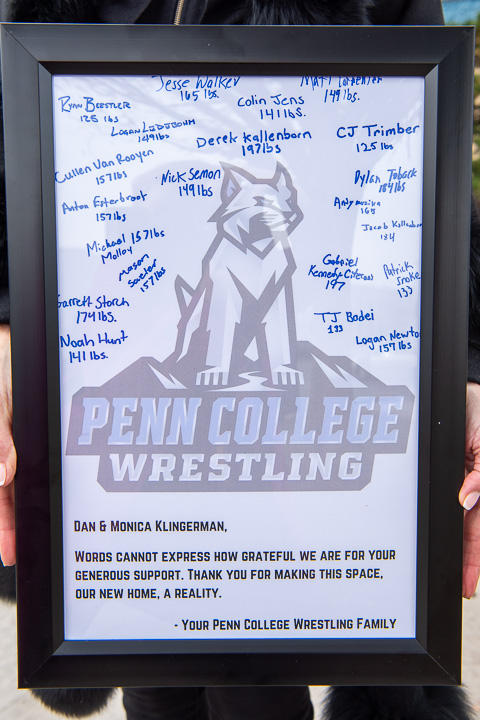 Jesse Walker
165 lbs.
Matt
149 lbs.
Ryan Beestler
125 lbs
Colin Jens
141 lbs.
Logan
149 lbs
Derek Kallenborn
197 lbs
CJ Trimber
125 lbs
Cullen Van Rooyen
157 lbs
Nick Semon
149 lbs
Dylan Toback
184 lbs
Anton Esterbroot
157 lbs
Andy
165
Jacob
Michael 157 lbs
Molloy
Mason
157 lbs
Gabriel
Kennedy
197
Patrick
133
Garrett Storch
174 lbs.
TJ Badei
133
Noah Hunt
141 lbs.
Logan Newto
157 lbs
PENN COLLEGE
WRESTLING
Dan & Monica Klingerman,
Words cannot express how grateful we are for your
generous support. Thank you for making this space,
our new home, a reality.
- Your Penn College Wrestling Family